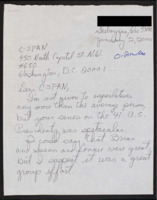 C-SPAN
400 North Capitol St. N.W.
#650
Washington, D.C. 20001
Dear C-SPAN,
I'm not given to superlatives
any more than the average person,
but your series on the 41 U.S.
Presidents was spectacular.
I could say that Brian
and Susan and were great,
but I suspect it was a great
group effort.